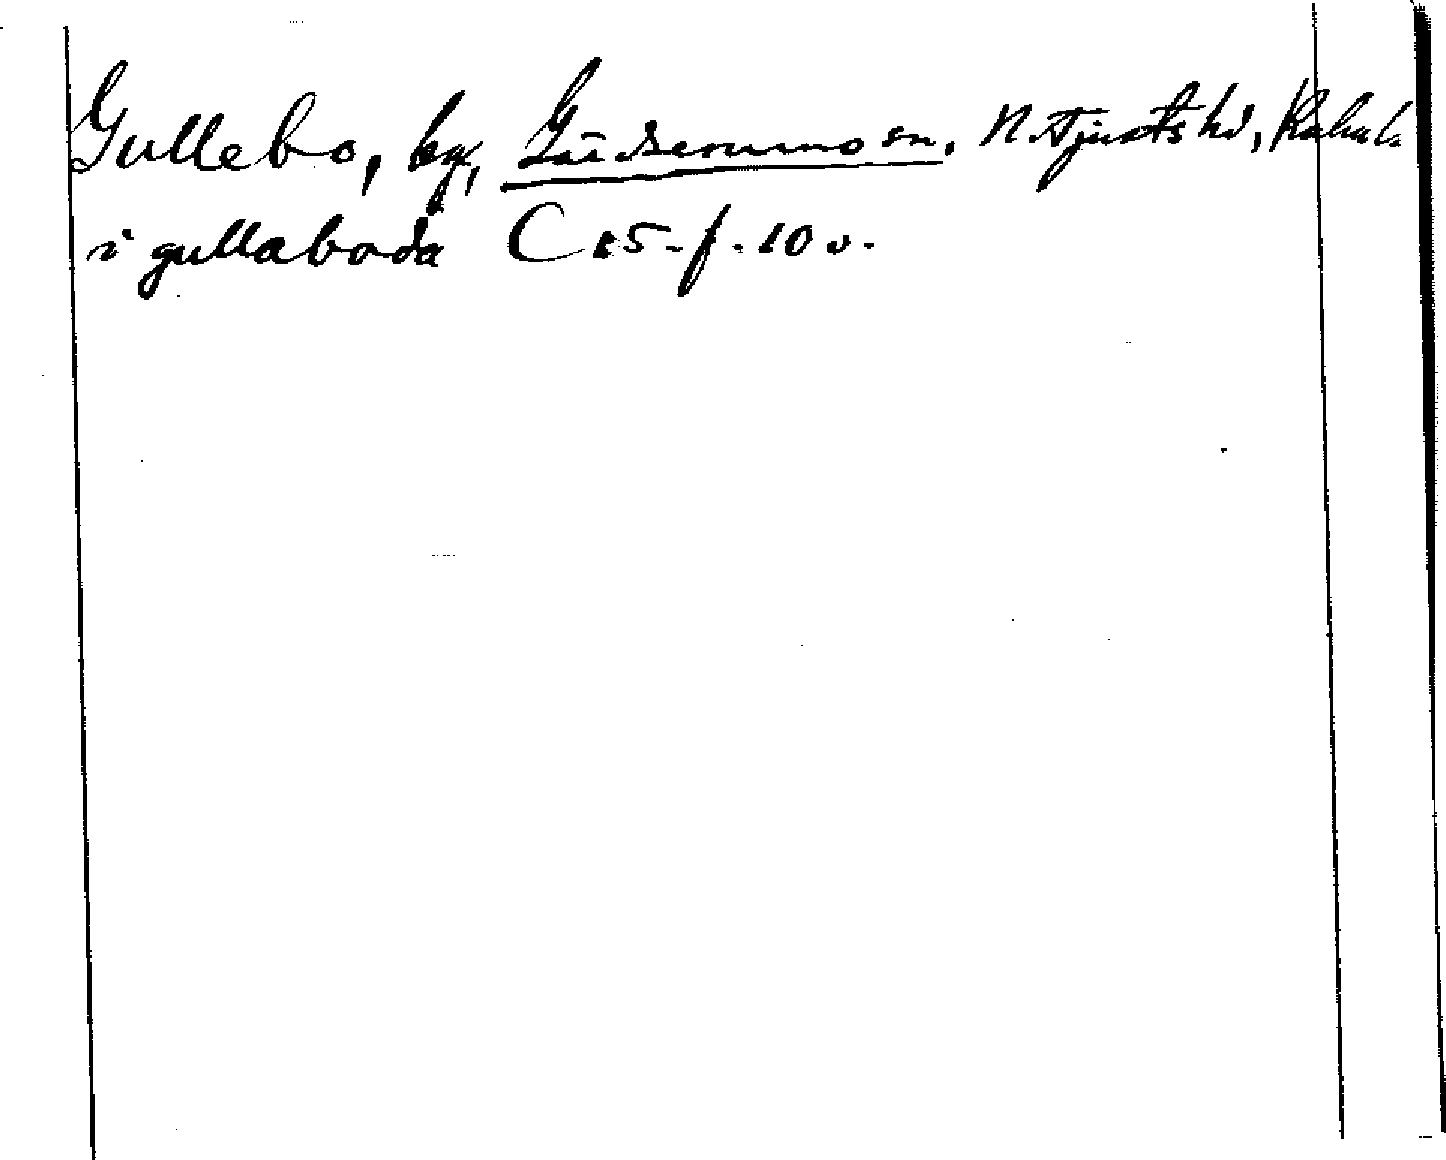 Gullebo, by, Gärdserums sn, N. Tjusts hd, Kalm. l.
i gullaboda C 15 f. 10 v.